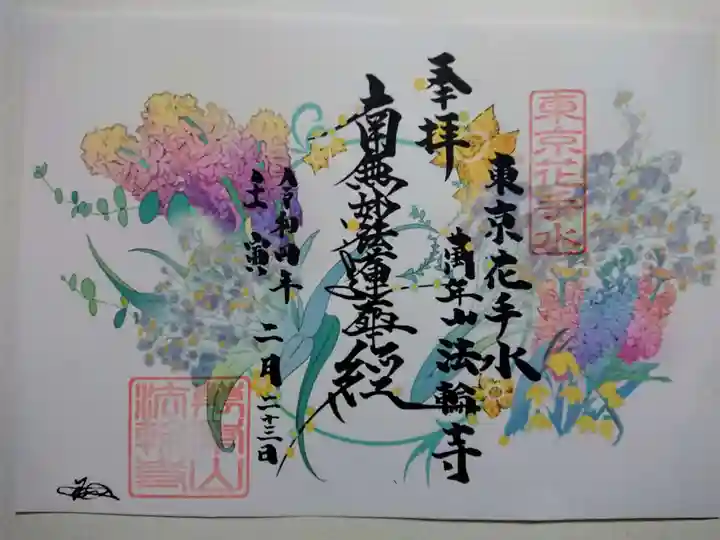 奉拝
東京花手水
東京花手水
萬年山法輪寺
南無妙法蓮華経
令和四年
壬寅
二月二十三日